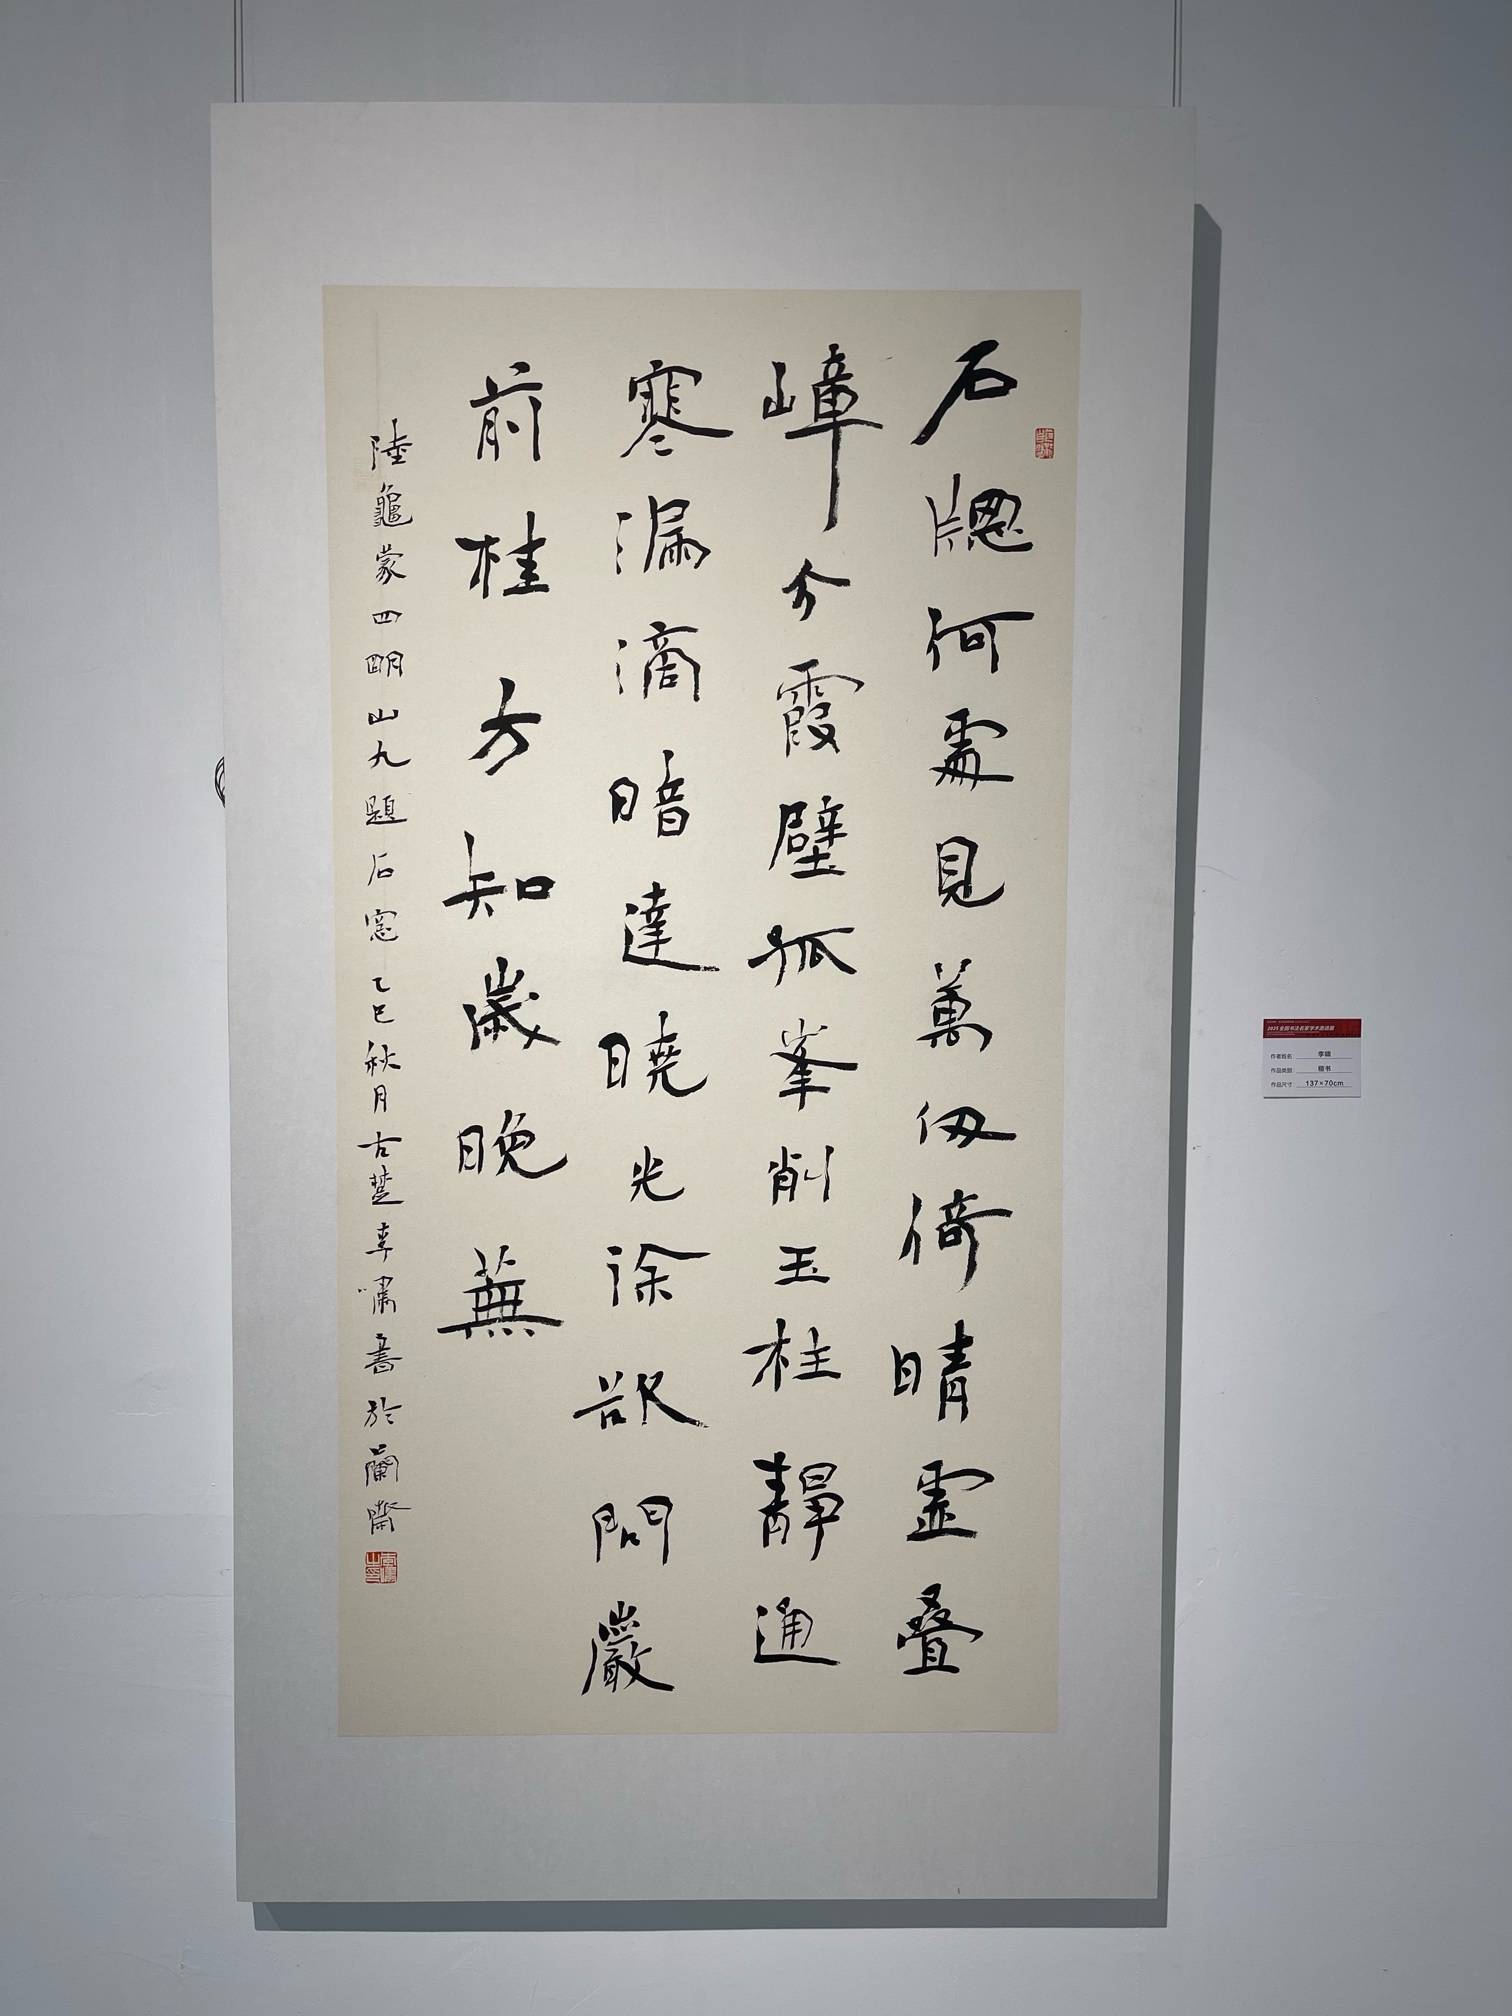 石牕何處見萬仞倚晴靈叠
嶂分霞壁孤峯削玉柱靜通
寒漏滴暗達曉光徐欲問巖
前桂方知歲晚蕪
陸龜蒙四明山九題石窓乙巳秋月古楚李嘯書於蘭齋
2025全国书法名家学术邀请展
作者姓名 李啸
作品类别 楷书
作品尺寸 137×70cm